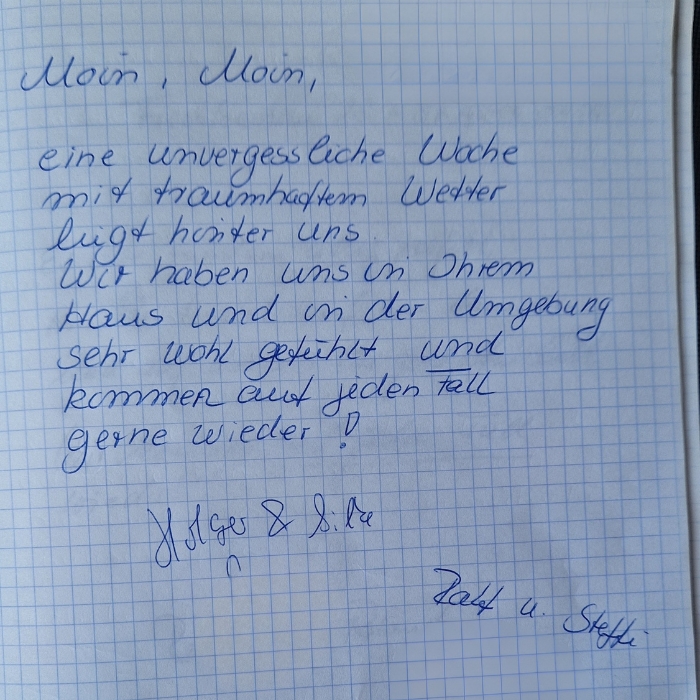 Moin, Moin,
eine unvergessliche Woche
mit traumhaftem Wetter
liegt hinter uns.
Wir haben uns in Ihrem
Haus und in der Umgebung
sehr wohl gefühlt und
kommen auf jeden Fall
gerne wieder!
Holger & Silke
Ralf u. Steffi